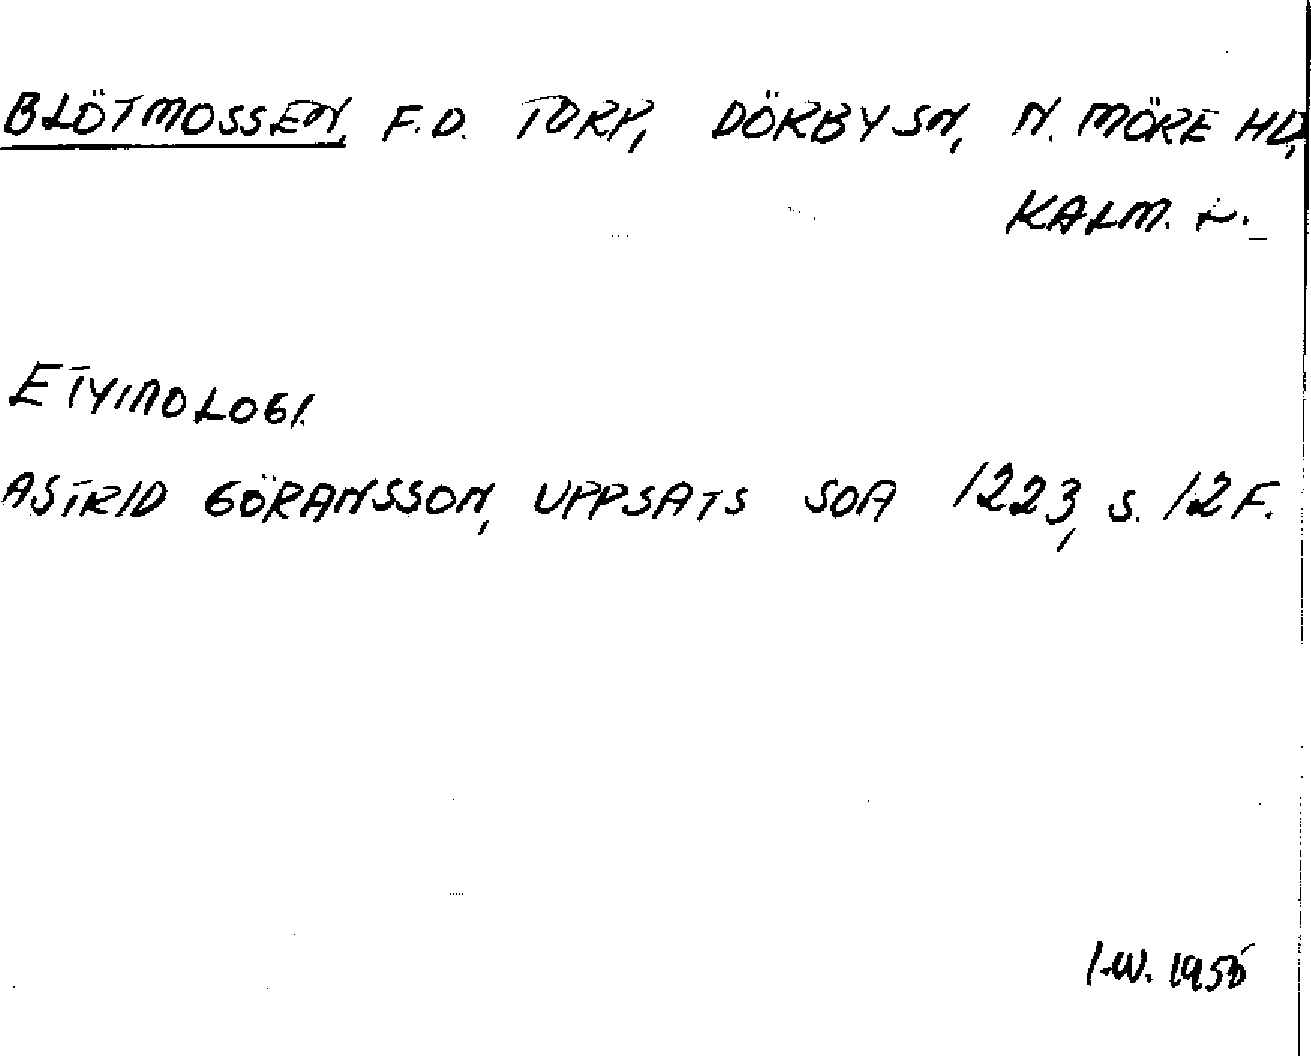 BLÖTMOSSEN, F.D. TORP, DÖRBY SN, N. MÖRE HD,
KALM. L.
ETYMOLOGI.
ASTRID GÖRANSSON, UPPSATS SOA 1223, S. 12 F.
I.W. 1955